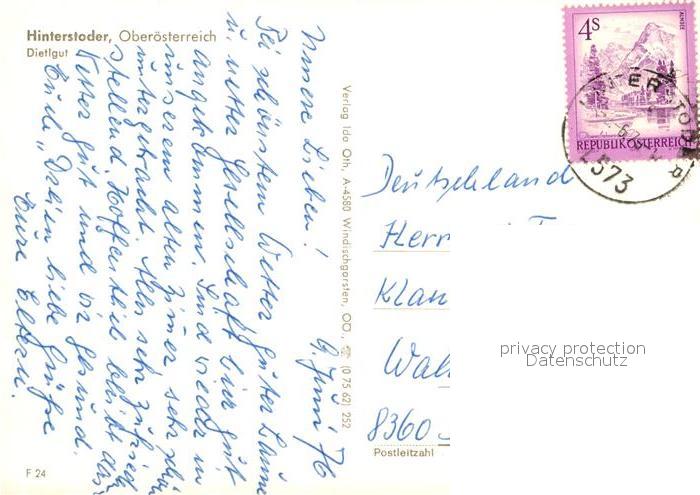 Hinterstoder, Oberösterreich
Dietlgut
9. Juni 76
Unsere Lieben!
Bei schönstem Wetter guter Laune
u. netter Gesellschaft hier gut
angekommen. Sind wieder in
unserem alten Zimer sehr schön
untergebracht. Alles sehr zufrieden
stellend. Hoffentlich bleibt das
Wetter gut und wir gesund.
Euch Daheim liebe Grüße
Eure Eltern.
Verlag Ida Oth, A-4580 Windischgarsten, OÖ., (0 75 62) 252
4S
ALMSEE
REPUBLIK ÖSTERREICH
4573
Deutschland
Herr
Klan
Wal
8360
Postleitzahl
privacy protection
Datenschutz
F 24